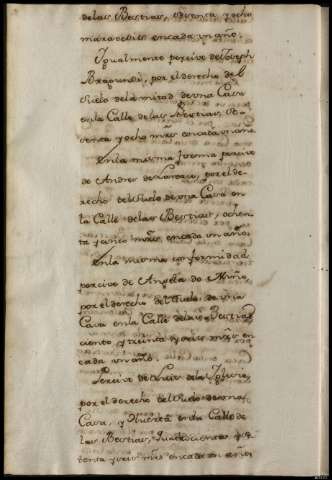 de las Bestias, ochenta y ocho
maravedies en cada un año.
Igualmente percive de Joseph
por el derecho del
suelo de la mitad de una Casa
en la Calle de las Bestias, Ochenta y ocho mrs en cada un año
En la misma forma percive
de Andres de por el derecho del suelo de una Casa en
la Calle de las Bestias, ochenta y cinco mrs en cada un año.
En la misma conformidad
percive de Angela de Muño,
por el derecho del suelo de una
Casa en la Calle de las Bestias
ciento y treinta y seis mrs en
cada un año.
Percive de Luis de la Iglesia,
por el derecho del suelo de una
Casa, y Huerta en la Calle de
las Bestias, quatrocientos
y seis mrs en cada un año